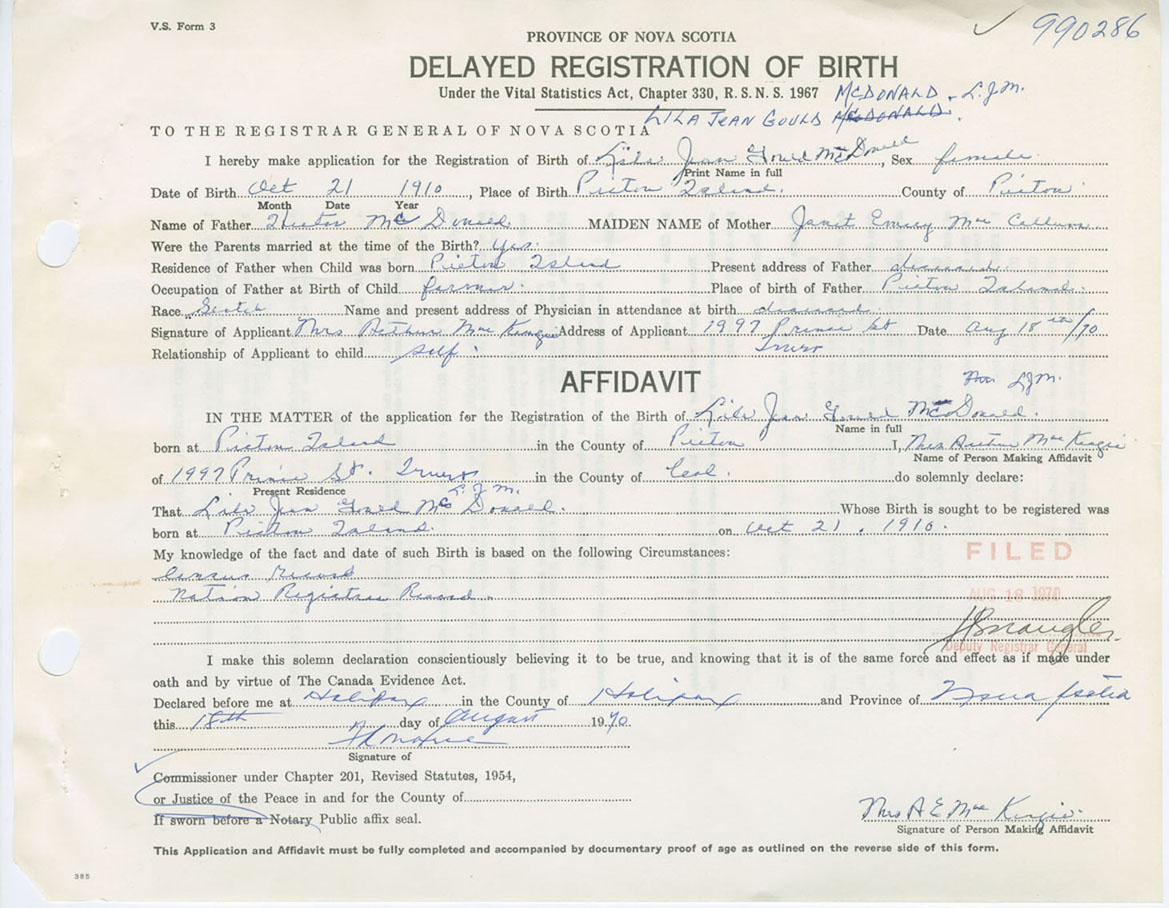 V.S. Form 3
990286
PROVINCE OF NOVA SCOTIA
DELAYED REGISTRATION OF BIRTH
Under the Vital Statistics Act, Chapter 330, R.S.N.S. 1967 McDONALD - L.J.M.
LILA JEAN GOULD McDONALD.
TO THE REGISTRAR GENERAL OF NOVA SCOTIA
I hereby make application for the Registration of Birth of Lila Jean Gould McDonald, Sex female
Print Name in full
Date of Birth Oct 21 1910, Place of Birth Pictou Island. County of Pictou
Month Date Year
Name of Father McDonald MAIDEN NAME of Mother Janet Emery Mac Callum
Were the Parents married at the time of the Birth? Yes.
Residence of Father when Child was born Pictou Island Present address of Father deceased.
Occupation of Father at Birth of Child farmer. Place of birth of Father Pictou Island.
Race Scotch Name and present address of Physician in attendance at birth deceased.
Signature of Applicant Mrs Arthur MacKenzie Address of Applicant 1997 Prince St Date Aug 18th/70
Truro
Relationship of Applicant to child self.
AFFIDAVIT
L.J.M.
IN THE MATTER of the application for the Registration of the Birth of Lila Jean Gould McDonald.
Name in full
born at Pictou Island in the County of Pictou I, Mrs Arthur MacKenzie
Name of Person Making Affidavit
of 1997 Prince St. Truro in the County of Col. do solemnly declare:
Present Residence
L.J.M.
That Lila Jean Gould McDonald. Whose Birth is sought to be registered was
born at Pictou Island. on Oct 21, 1910.
My knowledge of the fact and date of such Birth is based on the following Circumstances:
Census Record
Nation Registree Record.
FILED
AUG 18 1970
Deputy Registrar General
I make this solemn declaration conscientiously believing it to be true, and knowing that it is of the same force and effect as if made under
oath and by virtue of The Canada Evidence Act.
Declared before me at Halifax in the County of Halifax and Province of Nova Scotia
this 18th day of August 1970.
Signature of
Commissioner under Chapter 201, Revised Statutes, 1954,
or Justice of the Peace in and for the County of
If sworn before a Notary Public affix seal.
Mrs A E MacKenzie.
Signature of Person Making Affidavit
This Application and Affidavit must be fully completed and accompanied by documentary proof of age as outlined on the reverse side of this form.
385